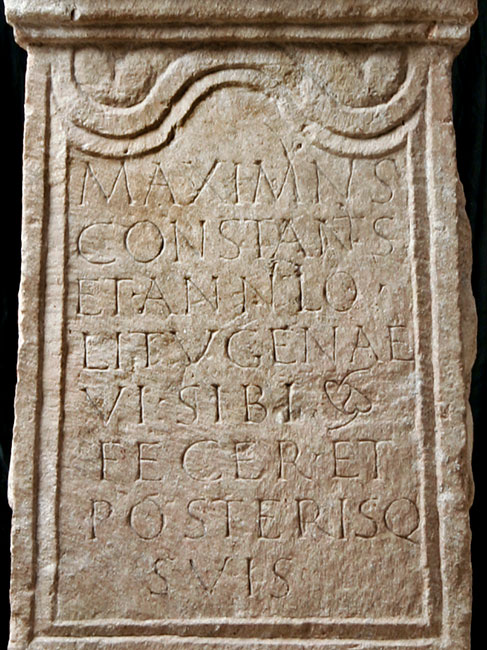 MAXIMVS
CONSTANS
ET·ANN·LO·
LITVGENAE
VI·SIBI
FECER·ET
POSTERISQ
SVIS